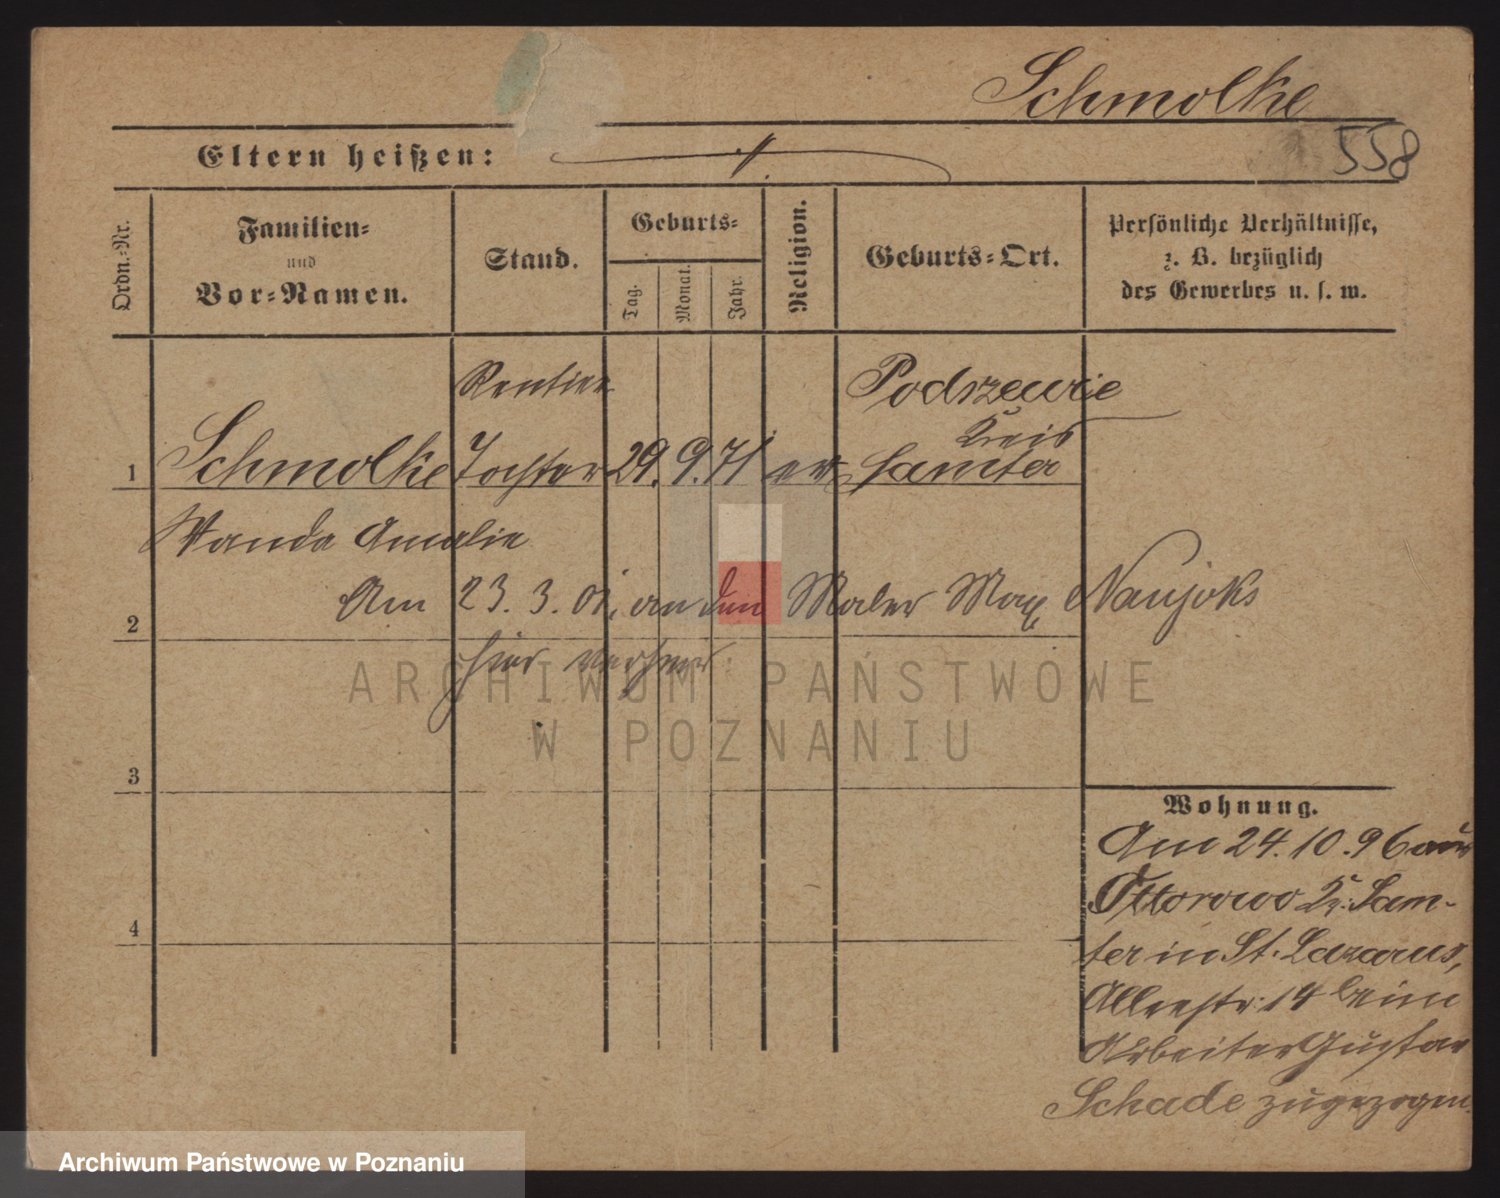 Schmolke
558
Eltern heißen:
Ordn.-Nr.
Familien-
und
Vor-Namen.
Stand.
Geburts-
Tag.
Monat.
Jahr.
Religion.
Geburts-Ort.
Persönliche Verhältnisse,
z. B. bezüglich
des Gewerbes u. s. w.
Rentier Podrzewie
Kreis
1 Schmolke Tochter 29. 9. 71 ev. Samter
Wanda Amalie
Am 23. 3. 01. an den Maler Max Naujoks
2
hier verheir.
ARCHIWUM PAŃSTWOWE
W POZNANIU
3
Wohnung.
Am 24. 10. 96 aus
Ottorowo Kr. Sam-
4
ter in St. Lazarus,
Alleestr. 14 beim
Arbeiter Gustav
Schade zugezogen.
Archiwum Państwowe w Poznaniu